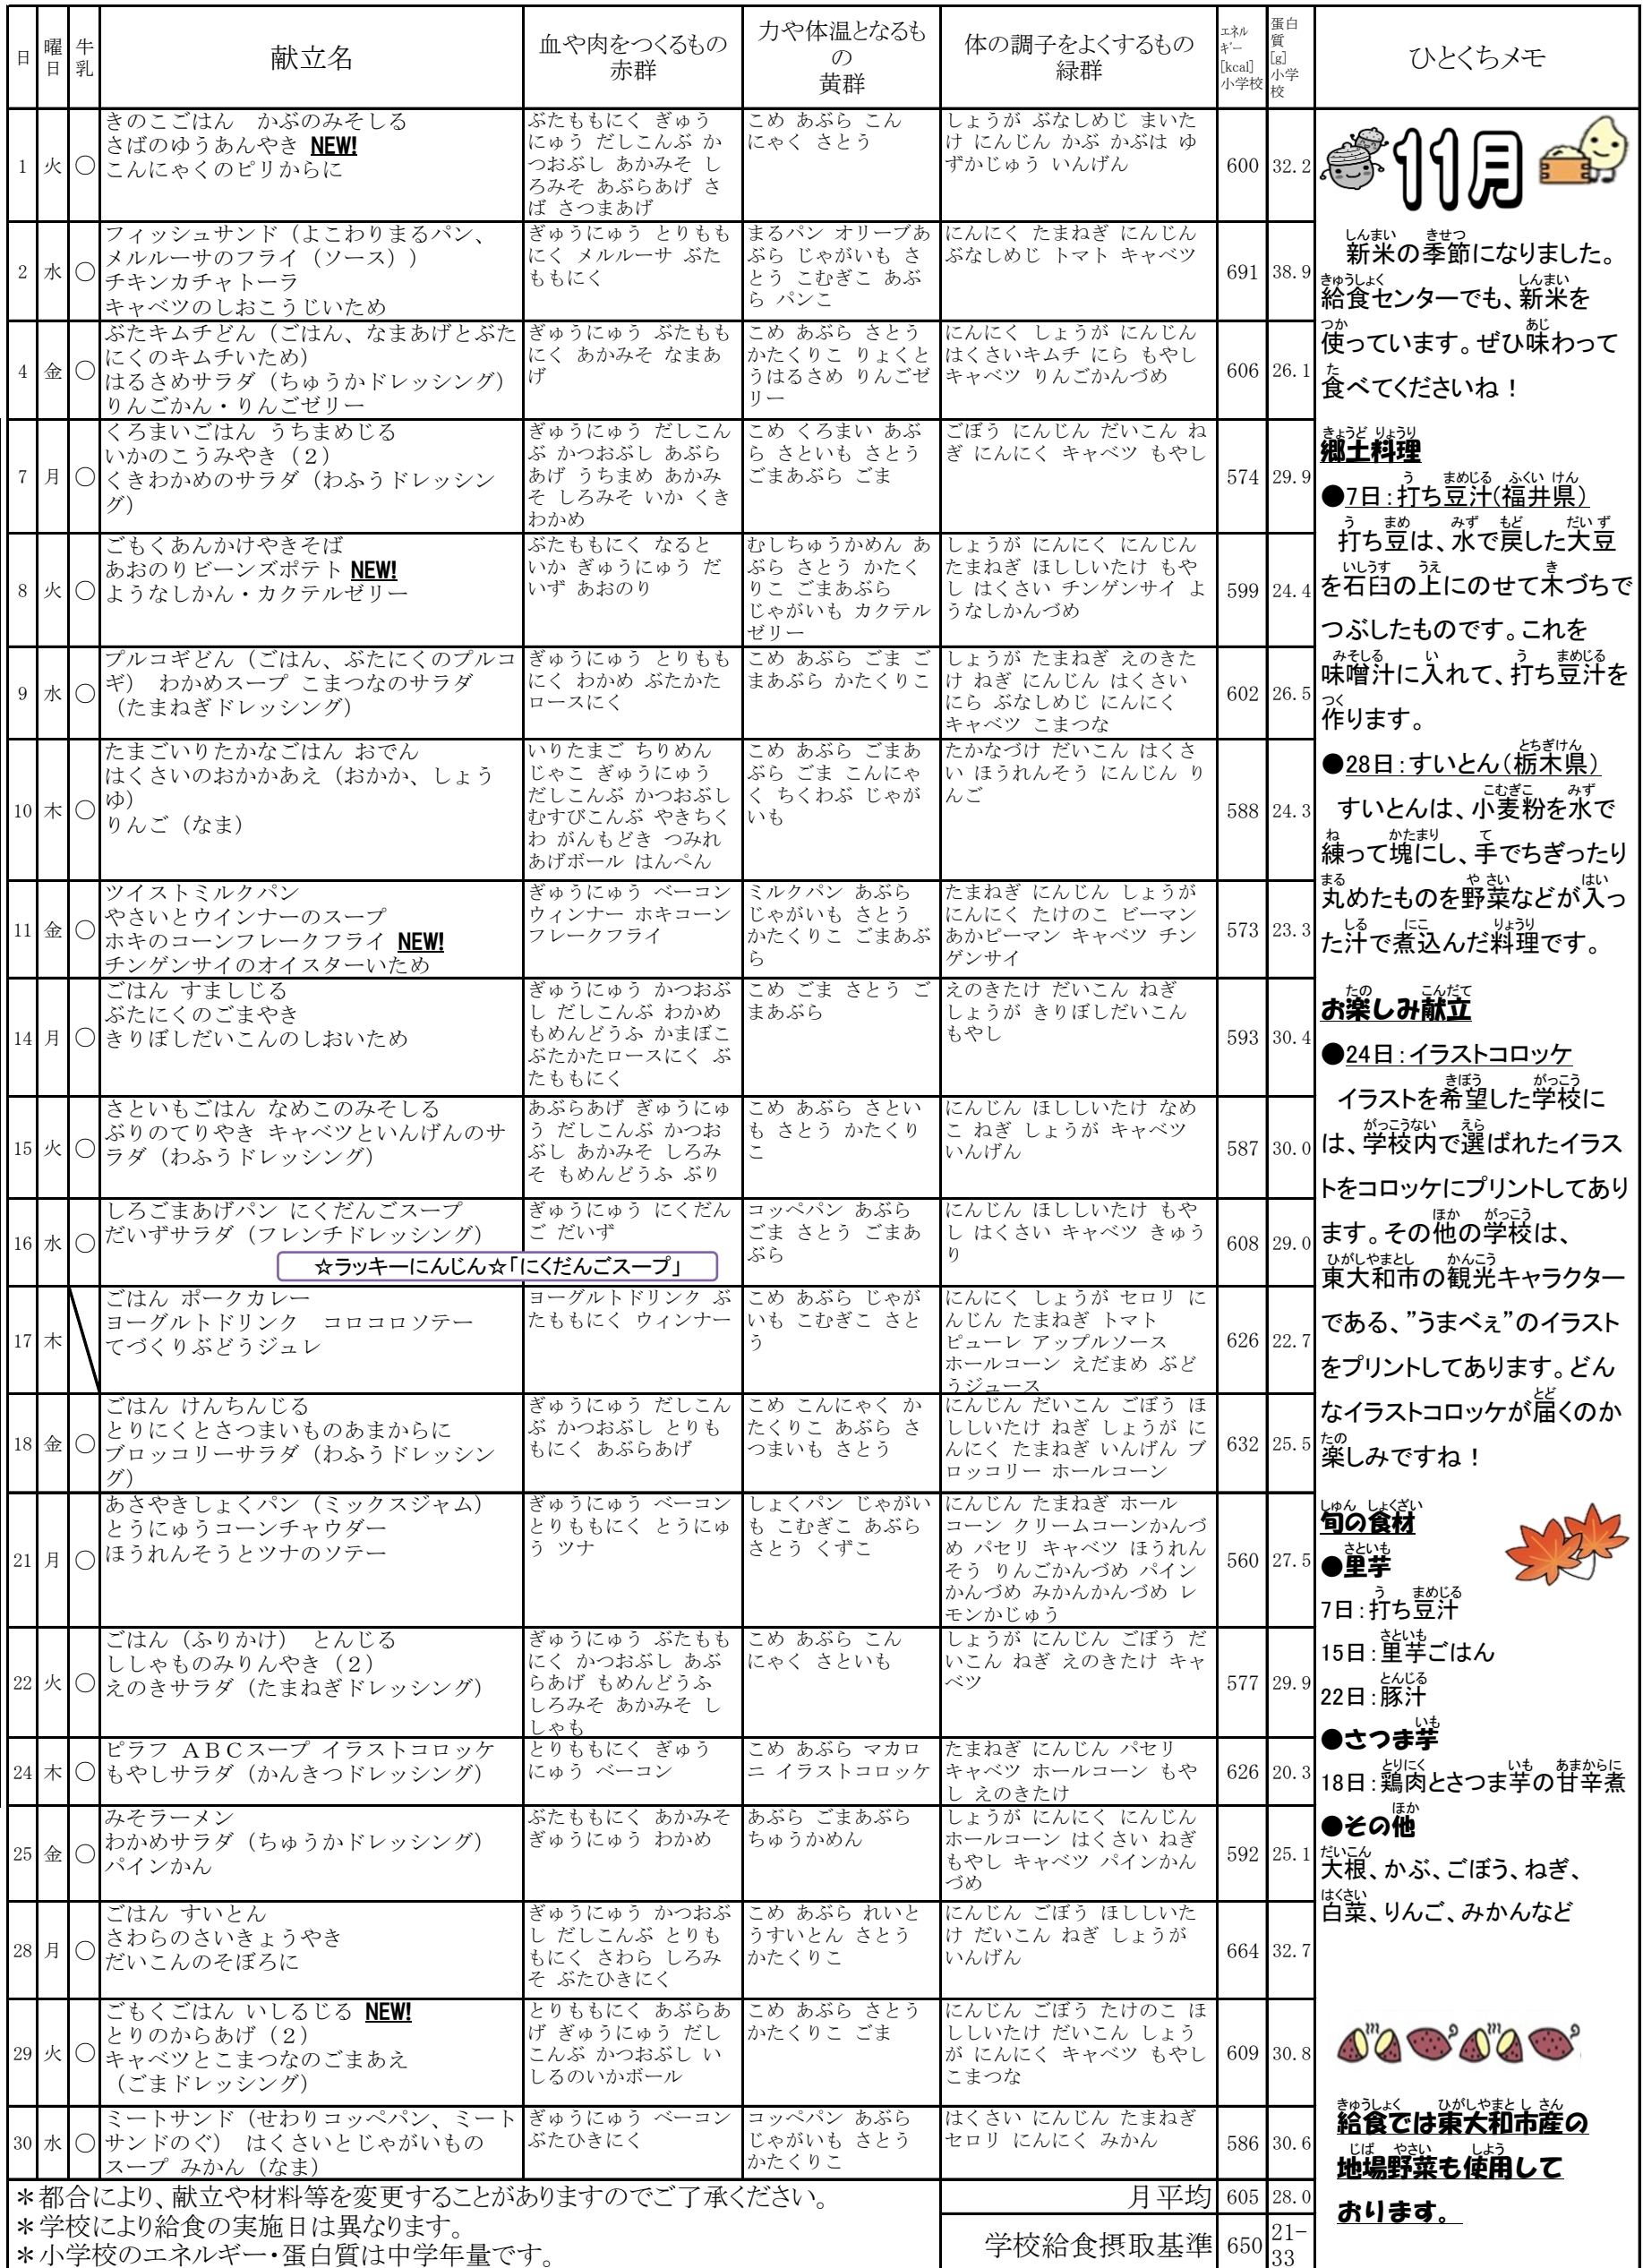 日
曜日
牛乳
献立名
血や肉をつくるもの
赤群
力や体温となるも
の
黄群
体の調子をよくするもの
緑群
エネル
ギー
[kcal]
小学校
蛋白
質
[g]
小学
校
ひとくちメモ
1 火 ○
きのこごはん　かぶのみそしる
さばのゆうあんやき NEW!
こんにゃくのピリからに
ぶたももにく ぎゅう
にゅう だしこんぶ か
つおぶし あかみそ し
ろみそ あぶらあげ さ
ば さつまあげ
こめ あぶら こん
にゃく さとう
しょうが ぶなしめじ まいた
け にんじん かぶ かぶは ゆ
ずかじゅう いんげん
600 32.2
2 水 ○
フィッシュサンド（よこわりまるパン、
メルルーサのフライ（ソース））
チキンカチャトーラ
キャベツのしおこうじいため
ぎゅうにゅう とりもも
にく メルルーサ ぶた
ももにく
まるパン オリーブあ
ぶら じゃがいも さ
とう こむぎこ あぶ
ら パンこ
にんにく たまねぎ にんじん
ぶなしめじ トマト キャベツ
691 38.9
4 金 ○
ぶたキムチどん（ごはん、なまあげとぶた
にくのキムチいため）
はるさめサラダ（ちゅうかドレッシング）
りんごかん・りんごゼリー
ぎゅうにゅう ぶたもも
にく あかみそ なまあ
げ
こめ あぶら さとう
かたくりこ りょくと
うはるさめ りんごゼ
リー
にんにく しょうが にんじん
はくさいキムチ にら もやし
キャベツ りんごかんづめ
606 26.1
7 月 ○
くろまいごはん うちまめじる
いかのこうみやき（２）
くきわかめのサラダ（わふうドレッシン
グ）
ぎゅうにゅう だしこん
ぶ かつおぶし あぶら
あげ うちまめ あかみ
そ しろみそ いか くき
わかめ
こめ くろまい あぶ
ら さといも さとう
ごまあぶら ごま
ごぼう にんじん だいこん ね
ぎ にんにく キャベツ もやし
574 29.9
8 火 ○
ごもくあんかけやきそば
あおのりビーンズポテト NEW!
ようなしかん・カクテルゼリー
ぶたももにく なると
いか ぎゅうにゅう だ
いず あおのり
むしちゅうかめん あ
ぶら さとう かたく
りこ ごまあぶら
じゃがいも カクテル
ゼリー
しょうが にんにく にんじん
たまねぎ ほししいたけ もや
し はくさい チンゲンサイ よ
うなしかんづめ
599 24.4
9 水 ○
プルコギどん（ごはん、ぶたにくのプルコ
ギ） わかめスープ こまつなのサラダ
（たまねぎドレッシング）
ぎゅうにゅう とりもも
にく わかめ ぶたかた
ロースにく
こめ あぶら ごま ご
まあぶら かたくりこ
しょうが たまねぎ えのきた
け ねぎ にんじん はくさい
にら ぶなしめじ にんにく
キャベツ こまつな
602 26.5
10 木 ○
たまごいりたかなごはん おでん
はくさいのおかかあえ（おかか、しょう
ゆ）
りんご（なま）
いりたまご ちりめん
じゃこ ぎゅうにゅう
だしこんぶ かつおぶし
むすびこんぶ やきちく
わ がんもどき つみれ
あげボール はんぺん
こめ あぶら ごまあ
ぶら ごま こんにゃ
く ちくわぶ じゃが
いも
たかなづけ だいこん はくさ
い ほうれんそう にんじん り
んご
588 24.3
11 金 ○
ツイストミルクパン
やさいとウインナーのスープ
ホキのコーンフレークフライ NEW!
チンゲンサイのオイスターいため
ぎゅうにゅう ベーコン
ウィンナー ホキコーン
フレークフライ
ミルクパン あぶら
じゃがいも さとう
かたくりこ ごまあぶ
ら
たまねぎ にんじん しょうが
にんにく たけのこ ピーマン
あかピーマン キャベツ チン
ゲンサイ
573 23.3
14 月 ○
ごはん すましじる
ぶたにくのごまやき
きりぼしだいこんのしおいため
ぎゅうにゅう かつおぶ
し だしこんぶ わかめ
もめんどうふ かまぼこ
ぶたかたロースにく ぶ
たももにく
こめ ごま さとう ご
まあぶら
えのきたけ だいこん ねぎ
しょうが きりぼしだいこん
もやし
593 30.4
15 火 ○
さといもごはん なめこのみそしる
ぶりのてりやき キャベツといんげんのサ
ラダ（わふうドレッシング）
あぶらあげ ぎゅうにゅ
う だしこんぶ かつお
ぶし あかみそ しろみ
そ もめんどうふ ぶり
こめ あぶら さとい
も さとう かたくり
こ
にんじん ほししいたけ なめ
こ ねぎ しょうが キャベツ
いんげん
587 30.0
16 水 ○
しろごまあげパン にくだんごスープ
だいずサラダ（フレンチドレッシング）
☆ラッキーにんじん☆「にくだんごスープ」
ぎゅうにゅう にくだん
ご だいず
コッペパン あぶら
ごま さとう ごまあ
ぶら
にんじん ほししいたけ もや
し はくさい キャベツ きゅう
り
608 29.0
17 木
ごはん ポークカレー
ヨーグルトドリンク　コロコロソテー
てづくりぶどうジュレ
ヨーグルトドリンク ぶ
たももにく ウィンナー
こめ あぶら じゃが
いも こむぎこ さと
う
にんにく しょうが セロリ に
んじん たまねぎ トマト
ピューレ アップルソース
ホールコーン えだまめ ぶど
うジュース
626 22.7
18 金 ○
ごはん けんちんじる
とりにくとさつまいものあまからに
ブロッコリーサラダ（わふうドレッシン
グ）
ぎゅうにゅう だしこん
ぶ かつおぶし とりも
もにく あぶらあげ
こめ こんにゃく か
たくりこ あぶら さ
つまいも さとう
にんじん だいこん ごぼう ほ
ししいたけ ねぎ しょうが に
んにく たまねぎ いんげん ブ
ロッコリー ホールコーン
632 25.5
21 月 ○
あさやきしょくパン（ミックスジャム）
とうにゅうコーンチャウダー
ほうれんそうとツナのソテー
ぎゅうにゅう ベーコン
とりももにく とうにゅ
う ツナ
しょくパン じゃがい
も こむぎこ あぶら
さとう くずこ
にんじん たまねぎ ホール
コーン クリームコーンかんづ
め パセリ キャベツ ほうれん
そう りんごかんづめ パイン
かんづめ みかんかんづめ レ
モンかじゅう
560 27.5
22 火 ○
ごはん（ふりかけ） とんじる
ししゃものみりんやき（２）
えのきサラダ（たまねぎドレッシング）
ぎゅうにゅう ぶたもも
にく かつおぶし あぶ
らあげ もめんどうふ
しろみそ あかみそ し
しゃも
こめ あぶら こん
にゃく さといも
しょうが にんじん ごぼう だ
いこん ねぎ えのきたけ キャ
ベツ
577 29.9
24 木 ○
ピラフ ＡＢＣスープ イラストコロッケ
もやしサラダ（かんきつドレッシング）
とりももにく ぎゅう
にゅう ベーコン
こめ あぶら マカロ
ニ イラストコロッケ
たまねぎ にんじん パセリ
キャベツ ホールコーン もや
し えのきたけ
626 20.3
25 金 ○
みそラーメン
わかめサラダ（ちゅうかドレッシング）
パインかん
ぶたももにく あかみそ
ぎゅうにゅう わかめ
あぶら ごまあぶら
ちゅうかめん
しょうが にんにく にんじん
ホールコーン はくさい ねぎ
もやし キャベツ パインかん
づめ
592 25.1
28 月 ○
ごはん すいとん
さわらのさいきょうやき
だいこんのそぼろに
ぎゅうにゅう かつおぶ
し だしこんぶ とりも
もにく さわら しろみ
そ ぶたひきにく
こめ あぶら れいと
うすいとん さとう
かたくりこ
にんじん ごぼう ほししいた
け だいこん ねぎ しょうが
いんげん
664 32.7
29 火 ○
ごもくごはん いしるじる NEW!
とりのからあげ（２）
キャベツとこまつなのごまあえ
（ごまドレッシング）
とりももにく あぶらあ
げ ぎゅうにゅう だし
こんぶ かつおぶし い
しるのいかボール
こめ あぶら さとう
かたくりこ ごま
にんじん ごぼう たけのこ ほ
ししいたけ だいこん しょう
が にんにく キャベツ もやし
こまつな
609 30.8
30 水 ○
ミートサンド（せわりコッペパン、ミート
サンドのぐ） はくさいとじゃがいもの
スープ みかん（なま）
ぎゅうにゅう ベーコン
ぶたひきにく
コッペパン あぶら
じゃがいも さとう
かたくりこ
はくさい にんじん たまねぎ
セロリ にんにく みかん
586 30.6
＊都合により、献立や材料等を変更することがありますのでご了承ください。
＊学校により給食の実施日は異なります。
＊小学校のエネルギー・蛋白質は中学年量です。
月平均 605 28.0
学校給食摂取基準 650 21-33
11月
しんまい きせつ
新米の季節になりました。
きゅうしょく しんまい
給食センターでも、新米を
つか あじ
使っています。ぜひ味わって
た
食べてくださいね！
きょうど りょうり
郷土料理
う まめじる ふくい けん
●7日：打ち豆汁(福井県)
う まめ みず もど だいず
打ち豆は、水で戻した大豆
いしうす うえ き
を石臼の上にのせて木づちで
つぶしたものです。これを
みそしる い う まめじる
味噌汁に入れて、打ち豆汁を
つく
作ります。
とちぎけん
●28日：すいとん(栃木県)
こむぎこ みず
すいとんは、小麦粉を水で
ね かたまり て
練って塊にし、手でちぎったり
まる やさい はい
丸めたものを野菜などが入っ
しる にこ りょうり
た汁で煮込んだ料理です。
たの こんだて
お楽しみ献立
●24日：イラストコロッケ
きぼう がっこう
イラストを希望した学校に
がっこうない えら
は、学校内で選ばれたイラス
トをコロッケにプリントしてあり
ほか がっこう
ます。その他の学校は、
ひがしやまとし かんこう
東大和市の観光キャラクター
である、”うまべぇ”のイラスト
をプリントしてあります。どん
とど
なイラストコロッケが届くのか
たの
楽しみですね！
しゅん しょくざい
旬の食材
さといも
●里芋
う まめじる
7日：打ち豆汁
さといも
15日：里芋ごはん
とんじる
22日：豚汁
いも
●さつま芋
とりにく いも あまからに
18日：鶏肉とさつま芋の甘辛煮
ほか
●その他
だいこん
大根、かぶ、ごぼう、ねぎ、
はくさい
白菜、りんご、みかんなど
きゅうしょく ひがしやまと し さん
給食では東大和市産の
じば やさい しよう
地場野菜も使用して
おります。